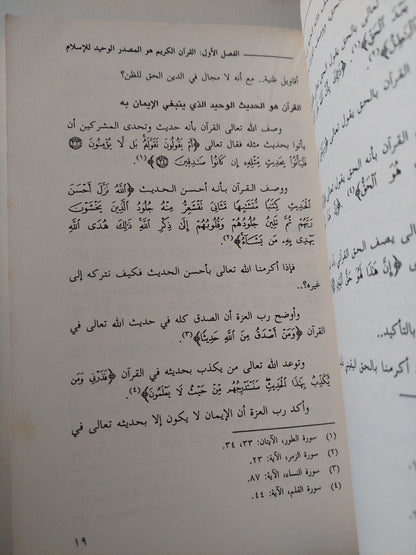 الفصل الأول: القرآن الكريم هو المصدر الوحيد للإسلام
أقاويل ظنية.. مع أنه لا مجال في الدين الحق للظن؟
القرآن هو الحديث الوحيد الذي ينبغي الإيمان به
وصف الله تعالى القرآن بأنه حديث وتحدى المشركين أن
يأتوا بحديث مثله فقال تعالى ﴿أَمْ يَقُولُونَ نَقَوَّلَهُۥ بَل لَّا يُؤْمِنُونَ ﴿٣٣﴾
فَلْيَأْتُوا۟ بِحَدِيثٍ مِّثْلِهِۦٓ إِن كَانُوا۟ صَـٰدِقِينَ ﴿٣٤﴾﴾(١).
ووصف القرآن بأنه أحسن الحديث ﴿ٱللَّهُ نَزَّلَ أَحْسَنَ
ٱلْحَدِيثِ كِتَـٰبًا مُّتَشَـٰبِهًا مَّثَانِىَ تَقْشَعِرُّ مِنْهُ جُلُودُ ٱلَّذِينَ يَخْشَوْنَ
رَبَّهُمْ ثُمَّ تَلِينُ جُلُودُهُمْ وَقُلُوبُهُمْ إِلَىٰ ذِكْرِ ٱللَّهِ ذَٰلِكَ هُدَى ٱللَّهِ
يَهْدِى بِهِۦ مَن يَشَآءُ﴾(٢).
فإذا أكرمنا الله تعالى بأحسن الحديث فكيف نتركه إلى
غيره؟..
وأوضح رب العزة أن الصدق كله في حديث الله تعالى في
القرآن ﴿وَمَنْ أَصْدَقُ مِنَ ٱللَّهِ حَدِيثًا﴾(٣).
وتوعد الله تعالى من يكذب بحديثه في القرآن ﴿فَذَرْنِى وَمَن
يُكَذِّبُ بِهَـٰذَا ٱلْحَدِيثِ سَنَسْتَدْرِجُهُم مِّنْ حَيْثُ لَا يَعْلَمُونَ﴾(٤).
وأكد رب العزة أن الإيمان لا يكون إلا بحديثه تعالى في
(١) سورة الطور، الآيتان: ٣٣، ٣٤.
(٢) سورة الزمر، الآية: ٢٣.
(٣) سورة النساء، الآية: ٨٧.
(٤) سورة القلم، الآية: ٤٤.
١٩